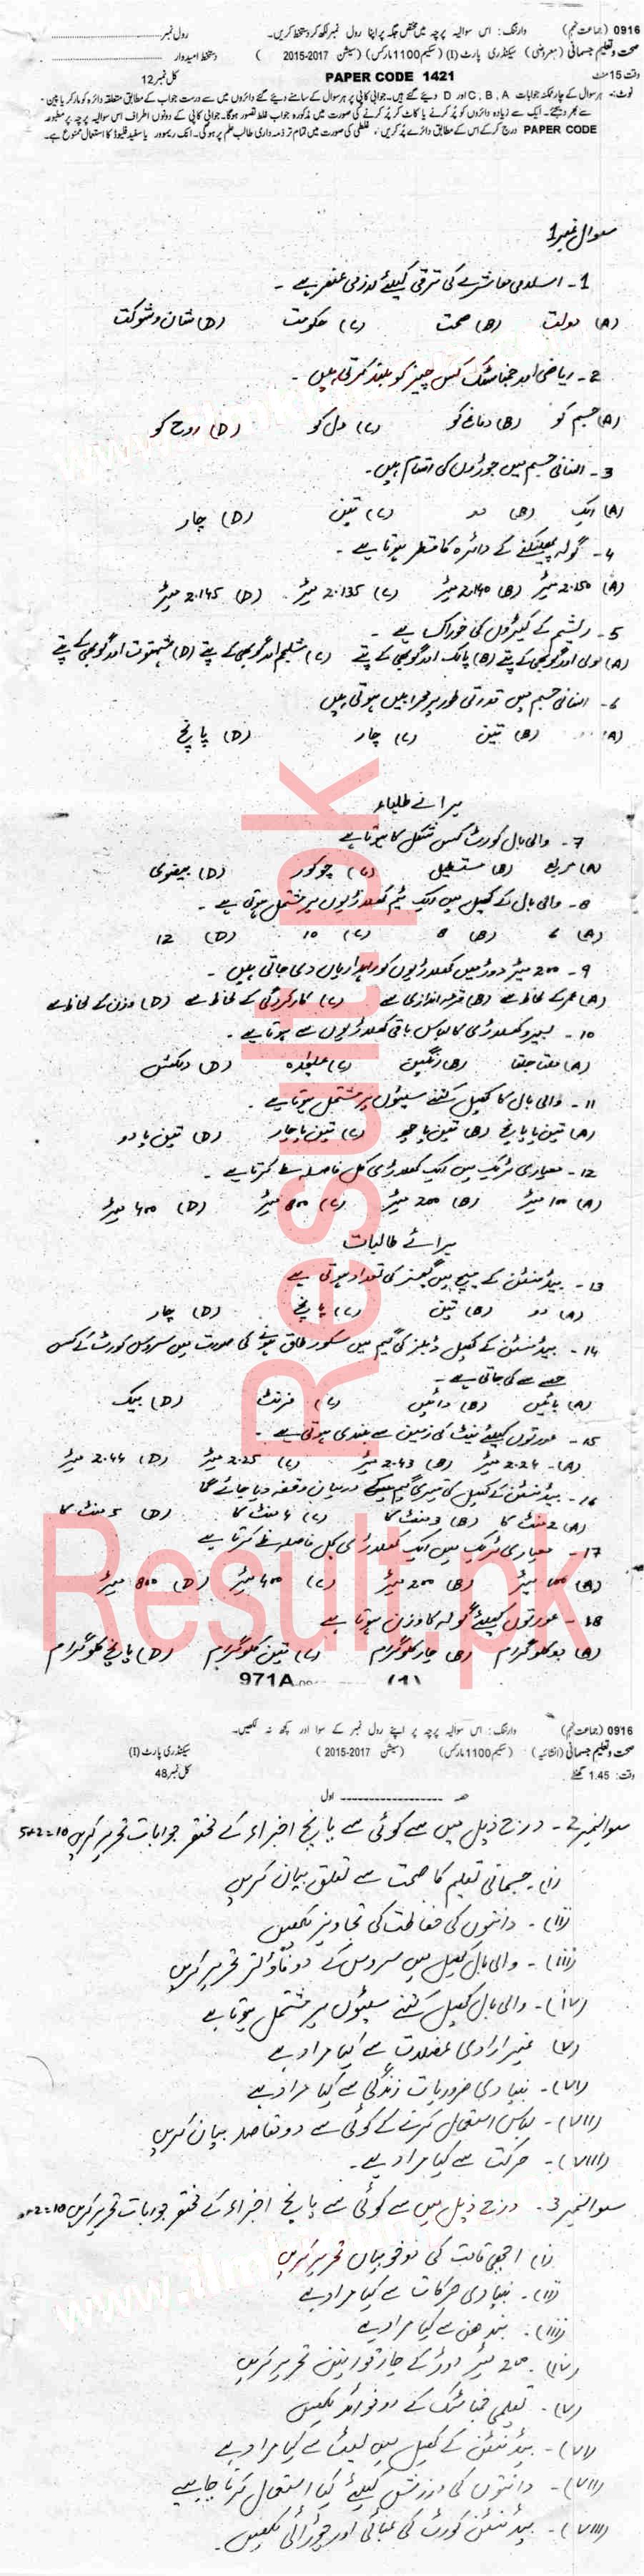 0916 (جماعت نہم) وارننگ: اس سوالیہ پرچہ میں مختص جگہ پر اپنا رول نمبر لکھ کر دستخط کریں۔ رول نمبر
صحت و تعلیم جسمانی (معروضی) سیکنڈری پارٹ (I) (سکیم 1100 مارکس) (سیشن 2015-2017) دستخط امیدوار
وقت 15 منٹ PAPER CODE 1421 کل نمبر 12
نوٹ:- ہر سوال کے چار ممکنہ جوابات C , B , A اور D دیئے گئے ہیں۔ جوابی کاپی پر ہر سوال کے سامنے دیئے گئے دائروں میں سے درست جواب کے مطابق متعلقہ دائرہ کو مارکر یا پین
سے بھر دیجئے۔ ایک سے زیادہ دائروں کو پُر کرنے یا کاٹ کر پُر کرنے کی صورت میں مذکورہ جواب غلط تصور ہوگا۔ جوابی کاپی کے دونوں اطراف اس سوالیہ پرچہ پر مطبوعہ
PAPER CODE درج کر کے اس کے مطابق دائرے پُر کریں، غلطی کی صورت میں تمام تر ذمہ داری طالب علم پر ہوگی۔ انک ریموور یا سفید فلیوڈ کا استعمال ممنوع ہے۔
سوال نمبر 1
1- اسلامی معاشرے کی ترقی کیلئے لازمی عنصر ہے۔
(A) دولت (B) صحت (C) حکومت (D) شان و شوکت
2- ریاضی اور جمناسٹک کس چیز کو بلند کرتی ہیں۔
(A) جسم کو (B) دماغ کو (C) دل کو (D) روح کو
3- انسانی جسم میں جوڑوں کی اقسام ہیں۔
(A) ایک (B) دو (C) تین (D) چار
4- گولہ پھینکنے کے دائرہ کا قطر ہوتا ہے۔
(A) 2.150 میٹر (B) 2.140 میٹر (C) 2.135 میٹر (D) 2.145 میٹر
5- ریشم کے کیڑوں کی خوراک ہے۔
(A) مولی اور گوبھی کے پتے (B) پالک اور گوبھی کے پتے (C) شلجم اور گوبھی کے پتے (D) شہتوت اور گوبھی کے پتے
6- انسانی جسم میں قدرتی طور پر محرابیں ہوتی ہیں
(A) (B) تین (C) چار (D) پانچ
برائے طلباء
7- والی بال کورٹ کس شکل کا ہوتا ہے
(A) مربع (B) مستطیل (C) چوکور (D) بیضوی
8- والی بال کے کھیل میں ایک ٹیم کھلاڑیوں پر مشتمل ہوتی ہے۔
(A) 6 (B) 8 (C) 10 (D) 12
9- 200 میٹر دوڑ میں کھلاڑیوں کو راہداریاں دی جاتی ہیں۔
(A) عمر کے لحاظ سے (B) قرعہ اندازی سے (C) کارکردگی کے لحاظ سے (D) وزن کے لحاظ سے
10- لبیرو کھلاڑی کا لباس باقی کھلاڑیوں سے ہوتا ہے۔
(A) ملتا جلتا (B) رنگین (C) علیحدہ (D) دلکش
11- والی بال کا کھیل کتنے سیٹوں پر مشتمل ہوتا ہے۔
(A) تین یا پانچ (B) تین یا چھ (C) تین یا چار (D) تین یا دو
12- معیاری ٹریک میں ایک کھلاڑی کل فاصلہ طے کرتا ہے۔
(A) 100 میٹر (B) 200 میٹر (C) 800 میٹر (D) 400 میٹر
برائے طالبات
13- بیڈمنٹن کے میچ میں گیمز کی تعداد ہوتی ہے
(A) دو (B) تین (C) پانچ (D) چار
14- بیڈمنٹن کے کھیل ڈبلز کی گیم میں سکور طاق ہونے کی صورت میں سروس کورٹ کے کس
حصے سے کی جاتی ہے۔
(A) بائیں (B) دائیں (C) فرنٹ (D) بیک
15- عورتوں کیلئے نیٹ کی زمین سے بلندی ہوتی ہے۔
(A) 2.24 میٹر (B) 2.43 میٹر (C) 2.25 میٹر (D) 2.44 میٹر
16- بیڈمنٹن کے کھیل کی تیسری گیم کے درمیان وقفہ دیا جائے گا
(A) 2 منٹ کا (B) 3 منٹ کا (C) 4 منٹ کا (D) 5 منٹ کا
17- معیاری ٹریک میں ایک کھلاڑی کل فاصلہ طے کرتا ہے
(A) 100 میٹر (B) 200 میٹر (C) 400 میٹر (D) 800 میٹر
18- عورتوں کیلئے گولہ کا وزن ہوتا ہے
(A) دو کلوگرام (B) چار کلوگرام (C) تین کلوگرام (D) پانچ کلوگرام
971A (1)
0916 (جماعت نہم) وارننگ: اس سوالیہ پرچہ پر اپنے رول نمبر کے سوا اور کچھ نہ لکھیں۔
صحت و تعلیم جسمانی (انشائیہ) (سکیم 1100 مارکس) (سیشن 2015-2017) سیکنڈری پارٹ (I)
وقت: 1.45 گھنٹے کل نمبر 48
حصہ اول
سوال نمبر 2- درج ذیل میں سے کوئی سے پانچ اجزاء کے مختصر جوابات تحریر کریں 5×2=10
(i)- جسمانی تعلیم کا صحت سے تعلق بیان کریں
(ii)- دانتوں کی حفاظت کی تجاویز لکھیں
(iii)- والی بال کھیل میں سروس کے دو فاؤلز تحریر کریں
(iv)- والی بال کھیل کتنے سیٹوں پر مشتمل ہوتا ہے
(v) غیر ارادی عضلات سے کیا مراد ہے
(vi)- بنیادی ضروریات زندگی سے کیا مراد ہے
(vii)- لباس استعمال کرنے کے کوئی سے دو مقاصد بیان کریں
(viii)- حرکت سے کیا مراد ہے۔
سوال نمبر 3- درج ذیل میں سے کوئی سے پانچ اجزاء کے مختصر جوابات تحریر کریں 5×2=10
(i) اچھی قامت کی دو خوبیاں تحریر کریں
(ii)- بنیادی حرکات سے کیا مراد ہے
(iii)- بندھن سے کیا مراد ہے
(iv)- 200 میٹر دوڑ کے چار قوانین تحریر کریں
(v)- تعلیمی جمناسٹک کے دو فوائد لکھیں
(vi)- بیڈمنٹن کے کھیل میں لیٹ سے کیا مراد ہے
(vii)- دانتوں کی ورزش کیلئے کیا استعمال کرنا چاہیے
(viii)- بیڈمنٹن کورٹ کی لمبائی اور چوڑائی لکھیں۔
Result.pk
Result.pk